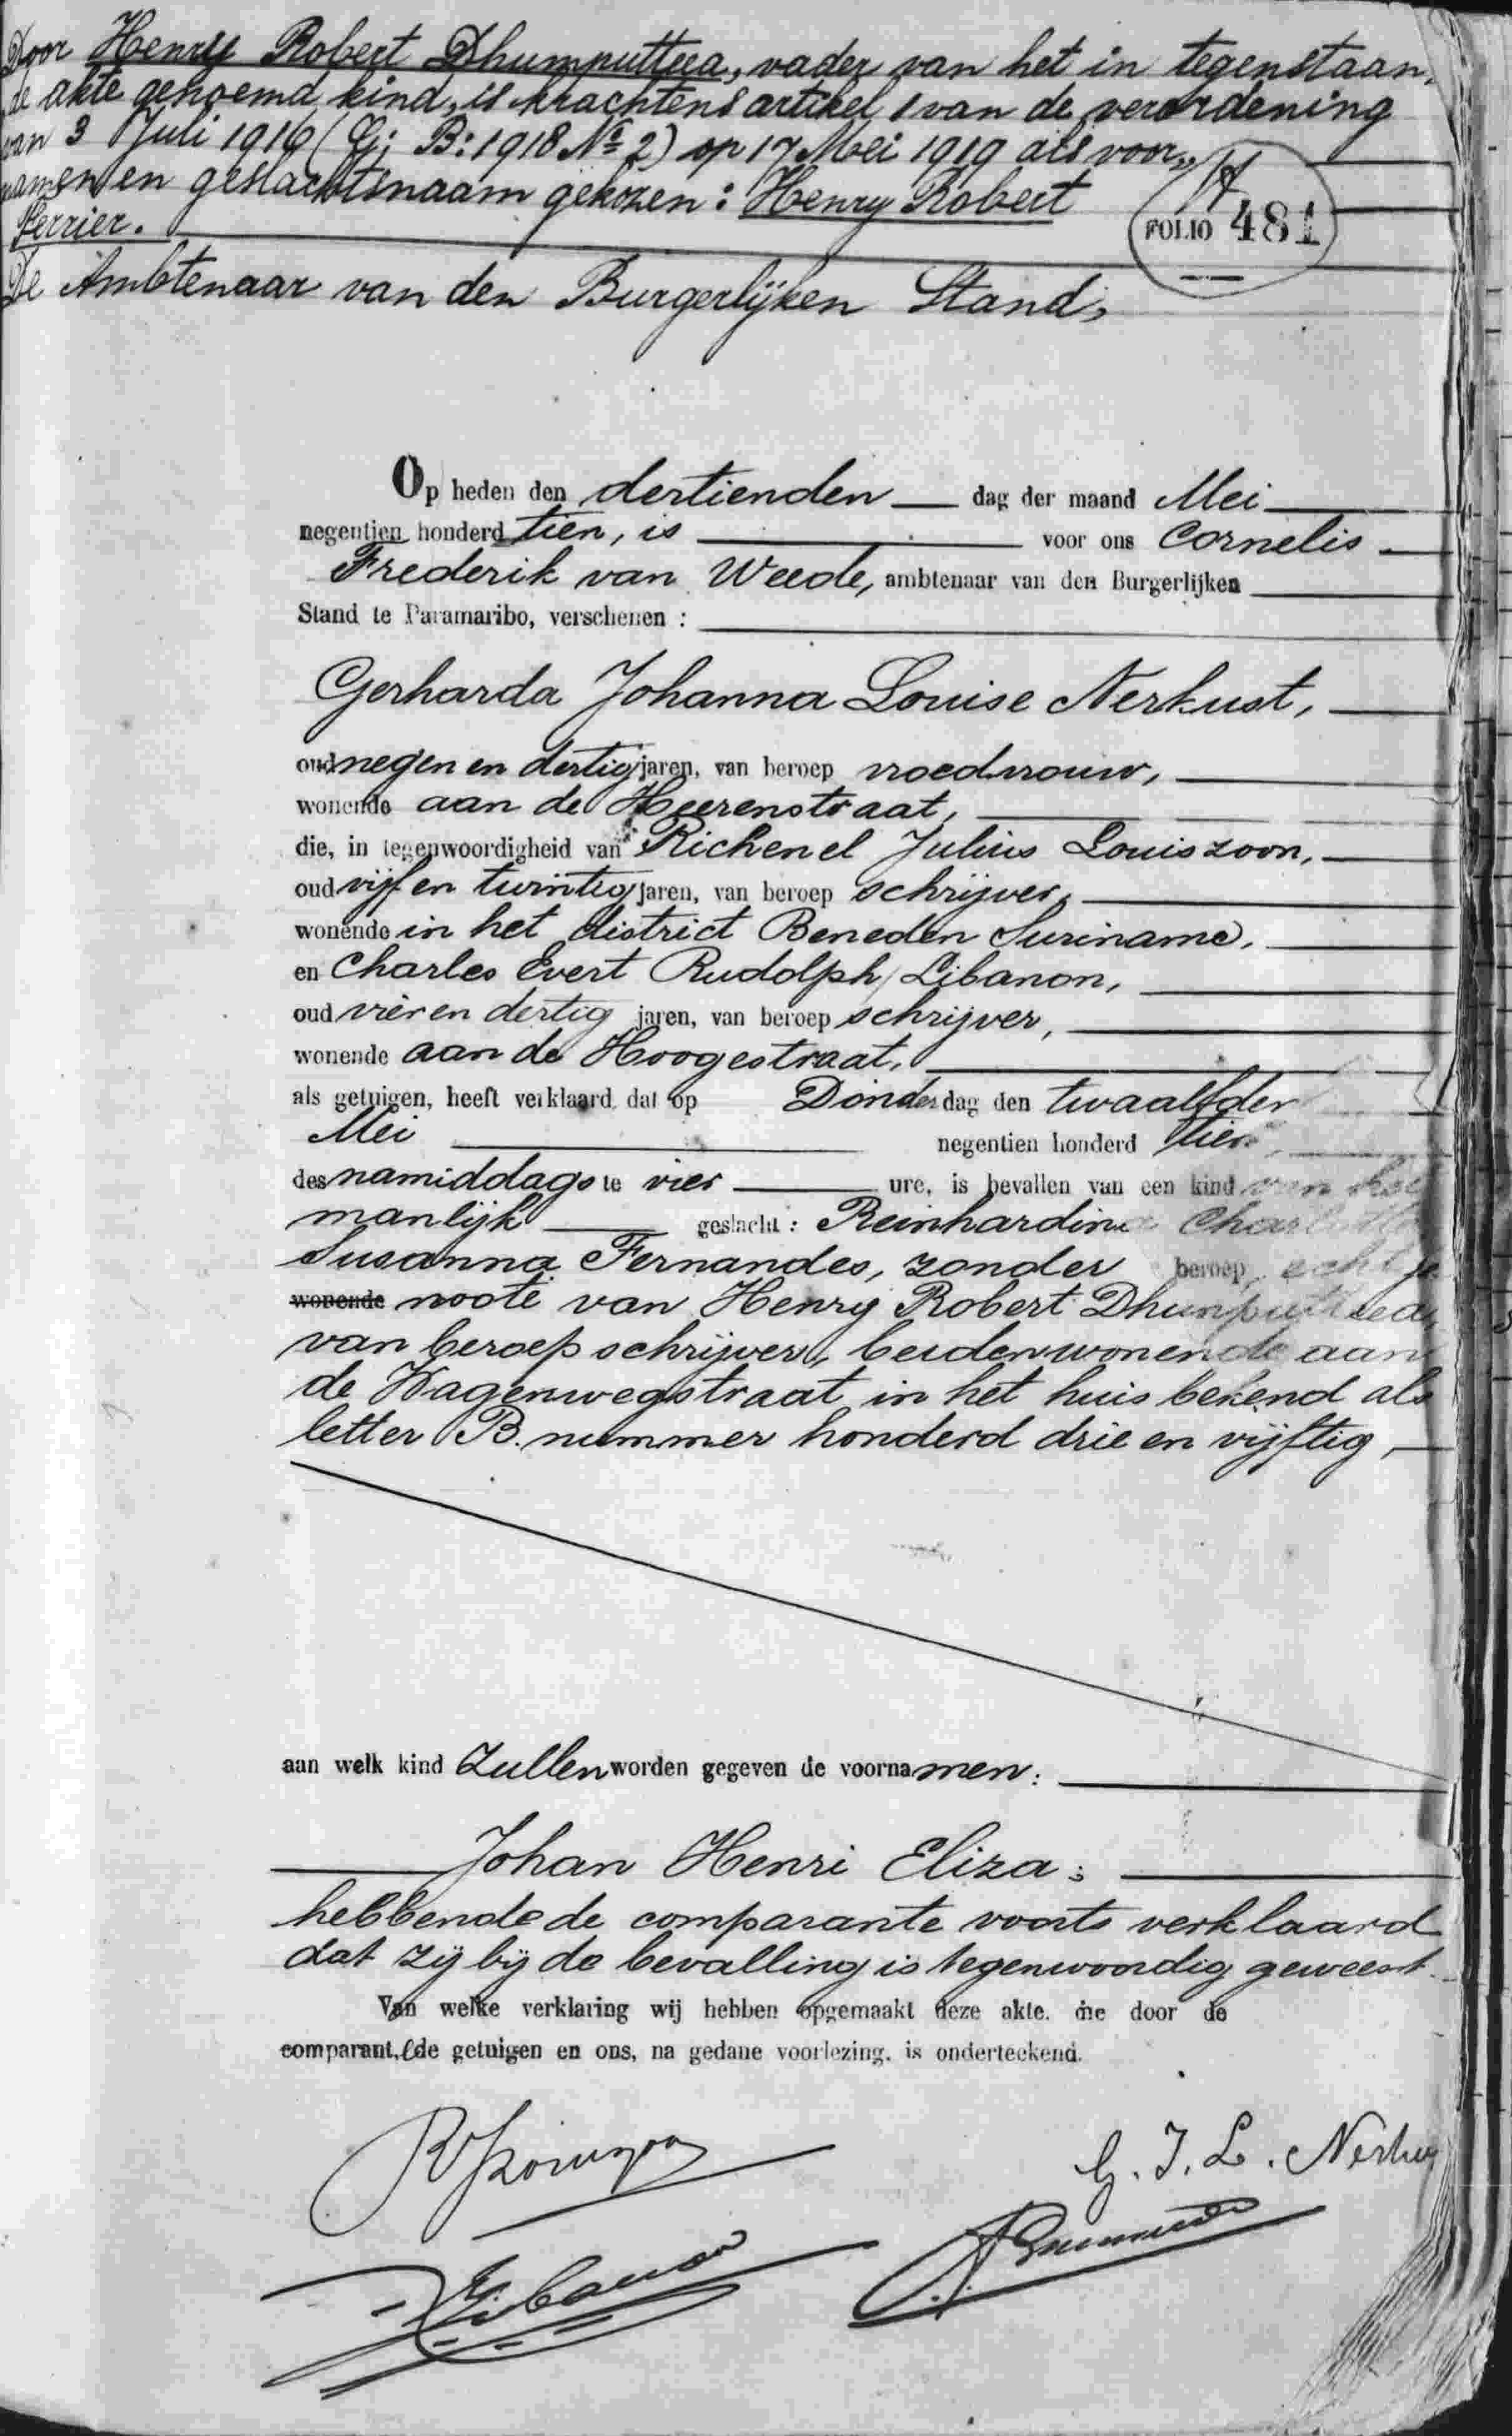 Door Henry Robert Dhumputtea, vader van het in tegenstaan-
de akte genoemd kind, is krachtens artikel 1 van de verordening
van 3 Juli 1916 (G: B: 1918 No 2) op 17 Mei 1919 als voor-
namen en geslachtsnaam gekozen: Henry Robert
Perrier.
FOLIO 481
De Ambtenaar van den Burgerlijken Stand,
Op heden den dertienden dag der maand Mei
negentien honderd tien, is voor ons Cornelis
Frederik van Weede, ambtenaar van den Burgerlijken
Stand te Paramaribo, verschenen :
Gerharda Johanna Louise Nerkust,
oud negen en dertig jaren, van beroep vroedvrouw,
wonende aan de Heerenstraat,
die, in tegenwoordigheid van Richenel Julius Louiszoon,
oud vijf en twintig jaren, van beroep schrijver,
wonende in het district Beneden Suriname,
en Charles Evert Rudolph Libanon,
oud vier en dertig jaren, van beroep schrijver,
wonende aan de Hoogestraat,
als getuigen, heeft verklaard, dat op Donderdag den twaalfden
Mei negentien honderd tien,
des namiddags te vier ure, is bevallen van een kind van het
manlijk geslacht : Reinhardina Charlotte
Susanna Fernandes, zonder beroep, echtge
wonende noote van Henry Robert Dhumputtea,
van beroep schrijver, beiden wonende aan
de Wagenwegstraat in het huis bekend als
letter B. nummer honderd drie en vijftig,
aan welk kind zullen worden gegeven de voornamen:
Johan Henri Eliza;
hebbende de comparante voorts verklaard
dat zij bij de bevalling is tegenwoordig geweest.
Van welke verklaring wij hebben opgemaakt deze akte, die door de
comparant,e de getuigen en ons, na gedane voorlezing, is onderteekend.
G. J. L. Nerkus
Libanon